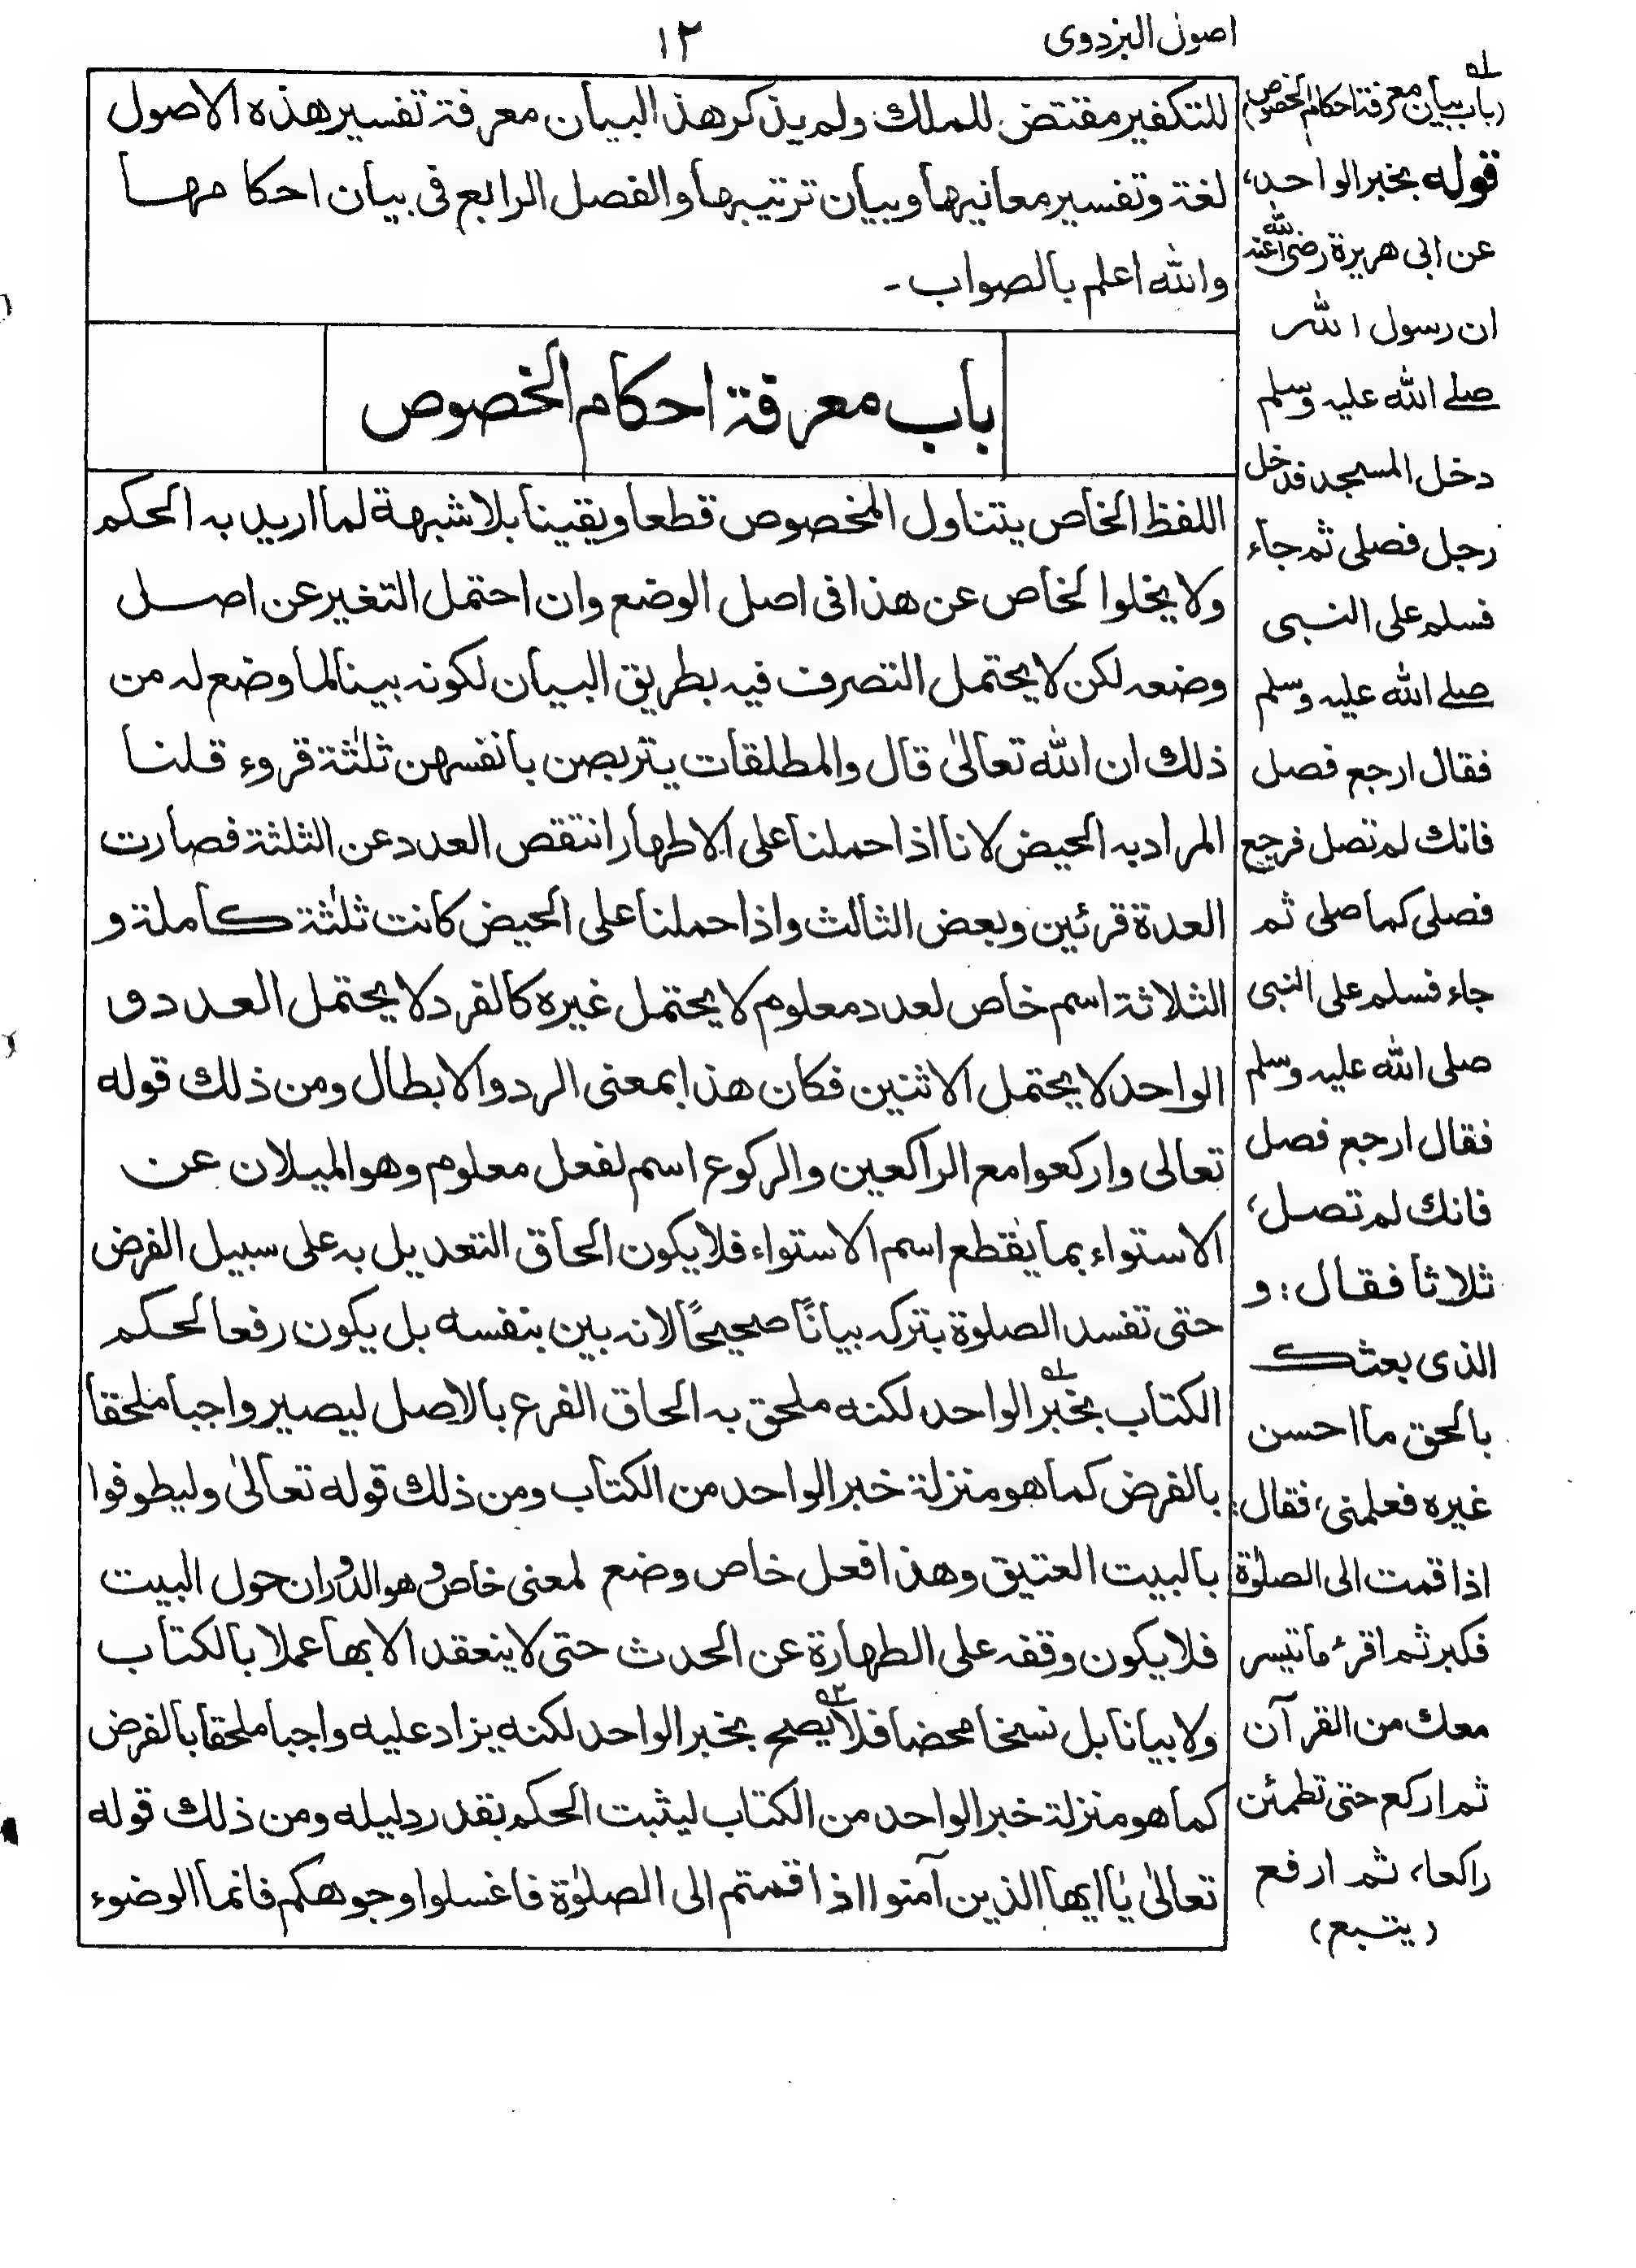 اصول البزدوی
١٢
للتكفير مقتض للملك ولم يذكر هذا البيان معرفة تفسير هذه الاصول
لغة وتفسير معانيها وبيان ترتيبها والفصل الرابع فی بيان احكامها
والله اعلم بالصواب ۔
باب معرفة احكام الخصوص
اللفظ الخاص يتناول المخصوص قطعا ويقينا بلا شبهة لما اريد به الحكم
ولا يخلوا لخاص عن هذا فی اصل الوضع وان احتمل التغير عن اصل
وضعه لكن لا يحتمل التصرف فيه بطريق البيان لكونه بينا لما وضع له من
ذلك ان الله تعالیٰ قال والمطلقات يتربصن بانفسهن ثلٰثة قروء قلنا
المراد به الحيض لانا اذا حملنا علی الاطهار انتقص العدد عن الثلثة فصارت
العدة قرئين وبعض الثالث واذا حملنا علی الحيض كانت ثلٰثة كاملة و
الثلاثة اسم خاص لعدد معلوم لا يحتمل غيره كالفرد لا يحتمل العدد و
الواحد لا يحتمل الاثنين فكان هذا بمعنی الرد والابطال ومن ذلك قوله
تعالی واركعوا مع الراكعين والركوع اسم لفعل معلوم وهو الميلان عن
الاستواء بما يقطع اسم الاستواء فلا يكون الحاق التعديل به علی سبيل الفرض
حتی تفسد الصلوة بتركه بيانًا صحيحًا لانه بين بنفسه بل يكون رفعا لحكم
الكتاب بخبر الواحد لكنه ملحق به الحاق الفرع بالاصل ليصير واجبا ملحقا
بالفرض كما هو منزلة خبر الواحد من الكتاب ومن ذلك قوله تعالیٰ وليطوفوا
بالبيت العتيق وهذا فعل خاص وضع لمعنی خاص وهو الدوران حول البيت
فلا يكون وقفه علی الطهارة عن الحدث حتی لا ينعقد الا بها عملا بالكتاب
ولا بيانا بل نسخا محضا فلا يصح بخبر الواحد لكنه يزاد عليه واجبا ملحقا بالفرض
كما هو منزلة خبر الواحد من الكتاب ليثبت الحكم بقدر دليله ومن ذلك قوله
تعالیٰ يٰا ايها الذين آمنوا اذا قمتم الی الصلوٰة فاغسلوا وجوهكم فانما الوضوء
(باب بيان معرفة احكام الخصوص)
قوله بخبر الواحد،
عن ابی هريرة رضی الله عنه
ان رسول الله
صلے الله عليه وسلم
دخل المسجد فدخل
رجل فصلی ثم جاء
فسلم علی النبی
صلے الله عليه وسلم
فقال ارجع فصل
فانك لم تصل فرجع
فصلی كما صلی ثم
جاء فسلم علی النبی
صلی الله عليه وسلم
فقال ارجع فصل
فانك لم تصل،
ثلاثا فقال: و
الذی بعثك
بالحق ما احسن
غيره فعلمنی، فقال:
اذا قمت الی الصلوٰة
فكبر ثم اقرء ما تيسر
معك من القرآن
ثم اركع حتی تطمئن
راكعا، ثم ارفع
(يتبع)